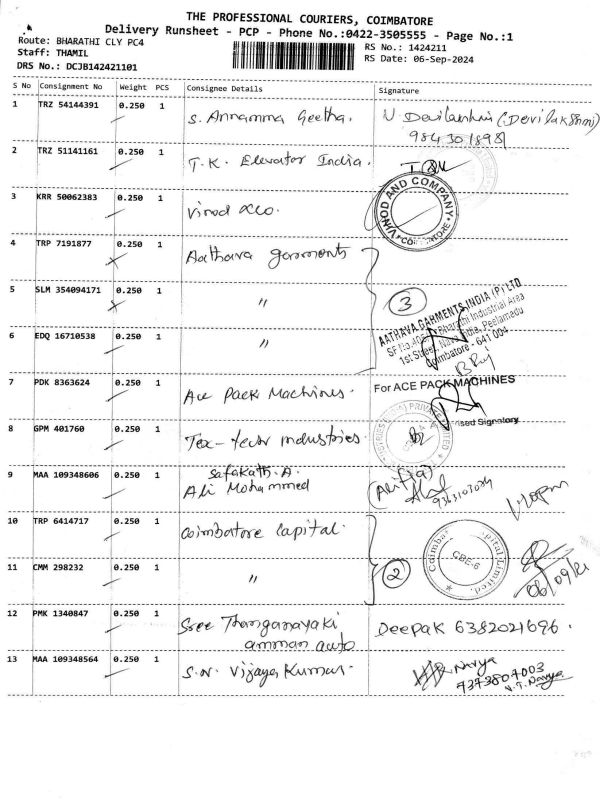 THE PROFESSIONAL COURIERS, COIMBATORE
Delivery Runsheet - PCP - Phone No.:0422-3505555 - Page No.:1
Route: BHARATHI CLY PC4
RS No.: 1424211
Staff: THAMIL
RS Date: 06-Sep-2024
DRS No.: DCJB142421101
S No Consignment No Weight PCS Consignee Details Signature
1 TRZ 54144391 0.250 1 S. Annamma Geetha. (Devilakshmi)
2 TRZ 51141161 0.250 1 T.K. Elevator India.
3 KRR 50062383 0.250 1 Vinod &co. VINOD AND COMPANY
4 TRP 7191877 0.250 1 Aathava garments
5 SLM 354094171 0.250 1 〃 3
AATHAVA GARMENTS INDIA (P) LTD
Bharathi Industrial Area
1st Street, Nava India, Peelamedu
Coimbatore - 641 004
6 EDQ 16710538 0.250 1 〃
7 PDK 8363624 0.250 1 Ace Pack Machines. For ACE PACK MACHINES
8 GPM 401760 0.250 1 Tex-tech industries
9 MAA 109348606 0.250 1 Safakath. A.
Ali Mohammed
10 TRP 6414717 0.250 1 Coimbatore Capital.
11 CMM 298232 0.250 1 〃 2 CBE-6
12 PMK 1340847 0.250 1 Sree Thanganayaki Deepak 6382021696.
amman auto
13 MAA 109348564 0.250 1 S.N. Vijaya Kumar. Navya
7373807003